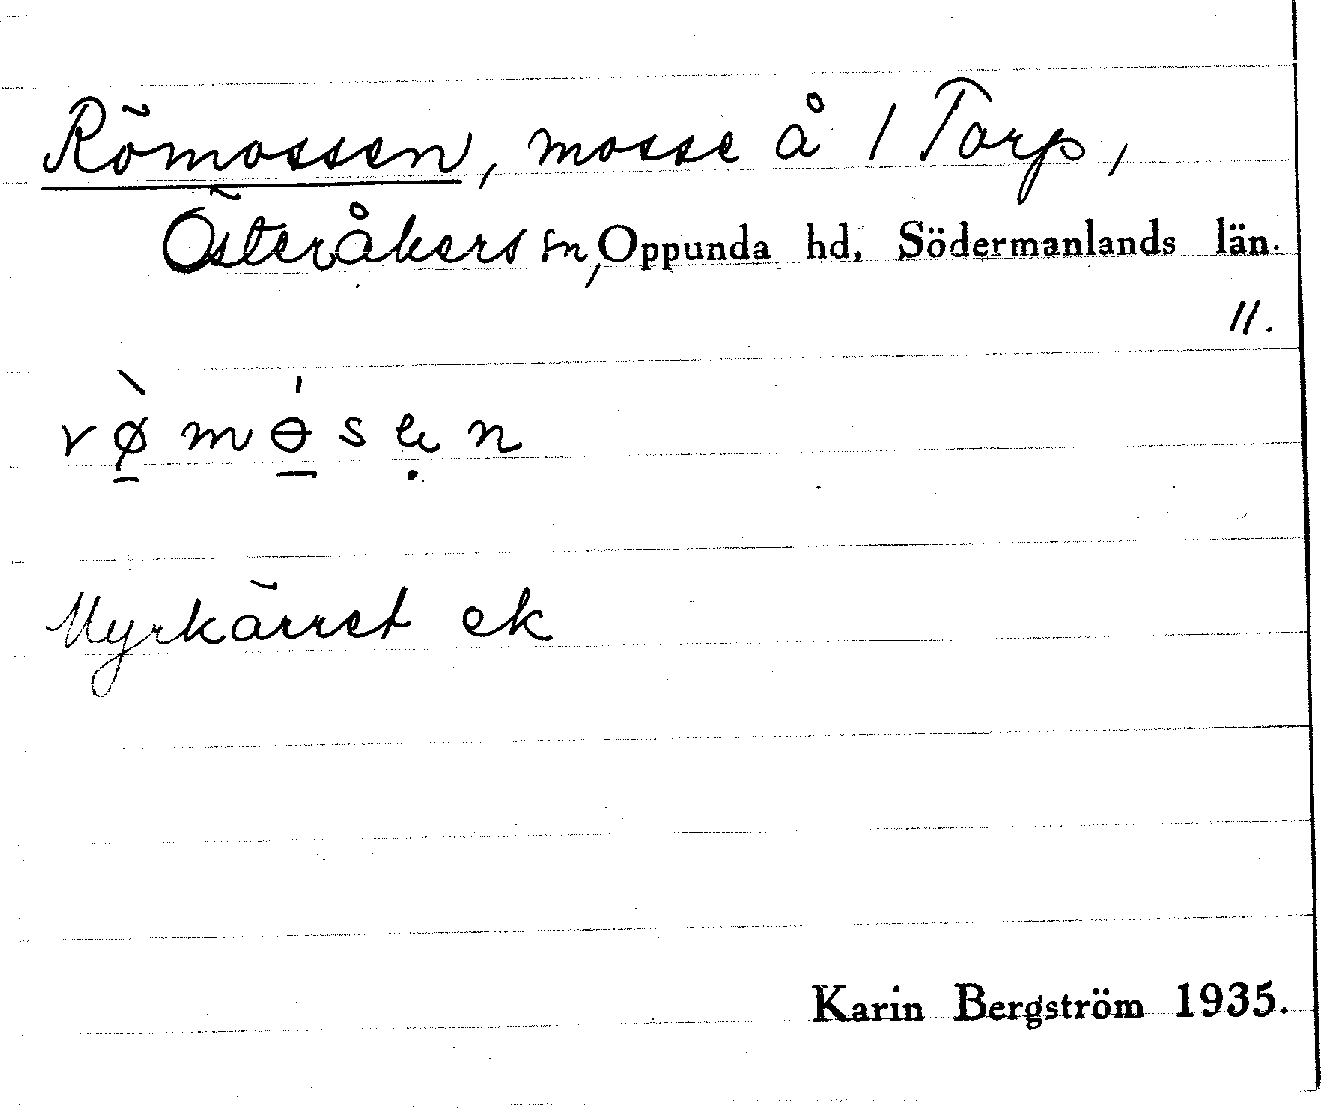 Römossen, mosse å 1 Torp,
Österåkers sn, Oppunda hd, Södermanlands län.
11.
rø̀mɵ́sen
Myrkärret ek
Karin Bergström 1935.